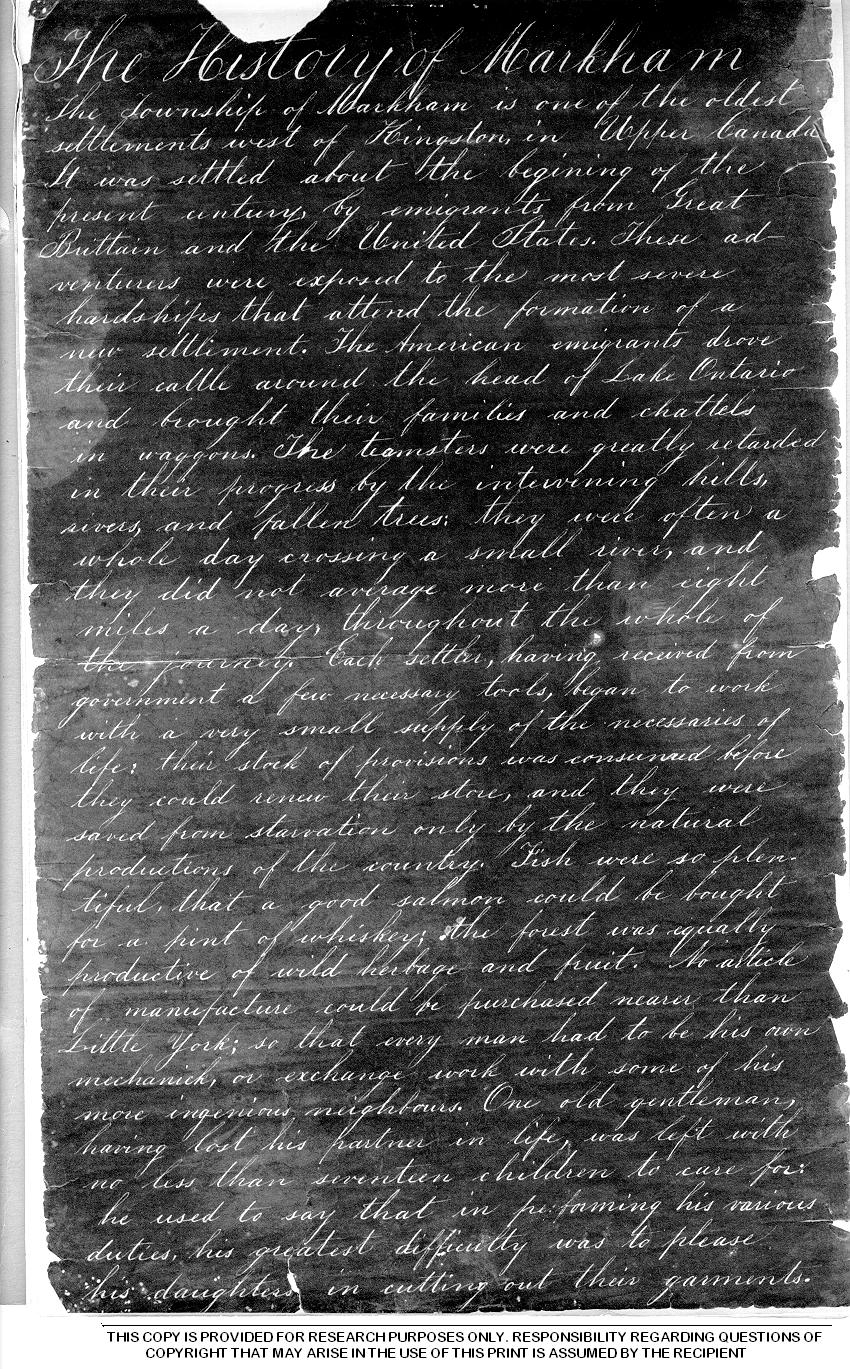 The History of Markham
The Township of Markham is one of the oldest
settlements west of Kingston, in Upper Canada
It was settled about the begining of the
present century, by emigrants from Great
Brittain and the United States. These ad-
venturers were exposed to the most severe
hardships that attend the formation of a
new settlement. The American emigrants drove
their cattle around the head of Lake Ontario
and brought their families and chattels
in waggons. The teamsters were greatly retarded
in their progress by the intervening hills,
rivers, and fallen trees: they were often a
whole day crossing a small river, and
they did not average more than eight
miles a day, throughout the whole of
the journey. Each settler, having received from
government a few necessary tools, began to work
with a very small supply of the necessaries of
life: their stock of provisions was consumed before
they could renew their store, and they were
saved from starvation only by the natural
productions of the country. Fish were so plen-
tiful, that a good salmon could be bought
for a pint of whiskey; the forest was equally
productive of wild herbage and fruit. No article
of manufacture could be purchased nearer than
Little York; so that every man had to be his own
mechanick, or exchange work with some of his
more ingenious neighbours. One old gentleman,
having lost his partner in life, was left with
no less than seventeen children to care for:
he used to say that in performing his various
duties, his greatest difficulty was to please
his daughters in cutting out their garments.
THIS COPY IS PROVIDED FOR RESEARCH PURPOSES ONLY. RESPONSIBILITY REGARDING QUESTIONS OF
COPYRIGHT THAT MAY ARISE IN THE USE OF THIS PRINT IS ASSUMED BY THE RECIPIENT